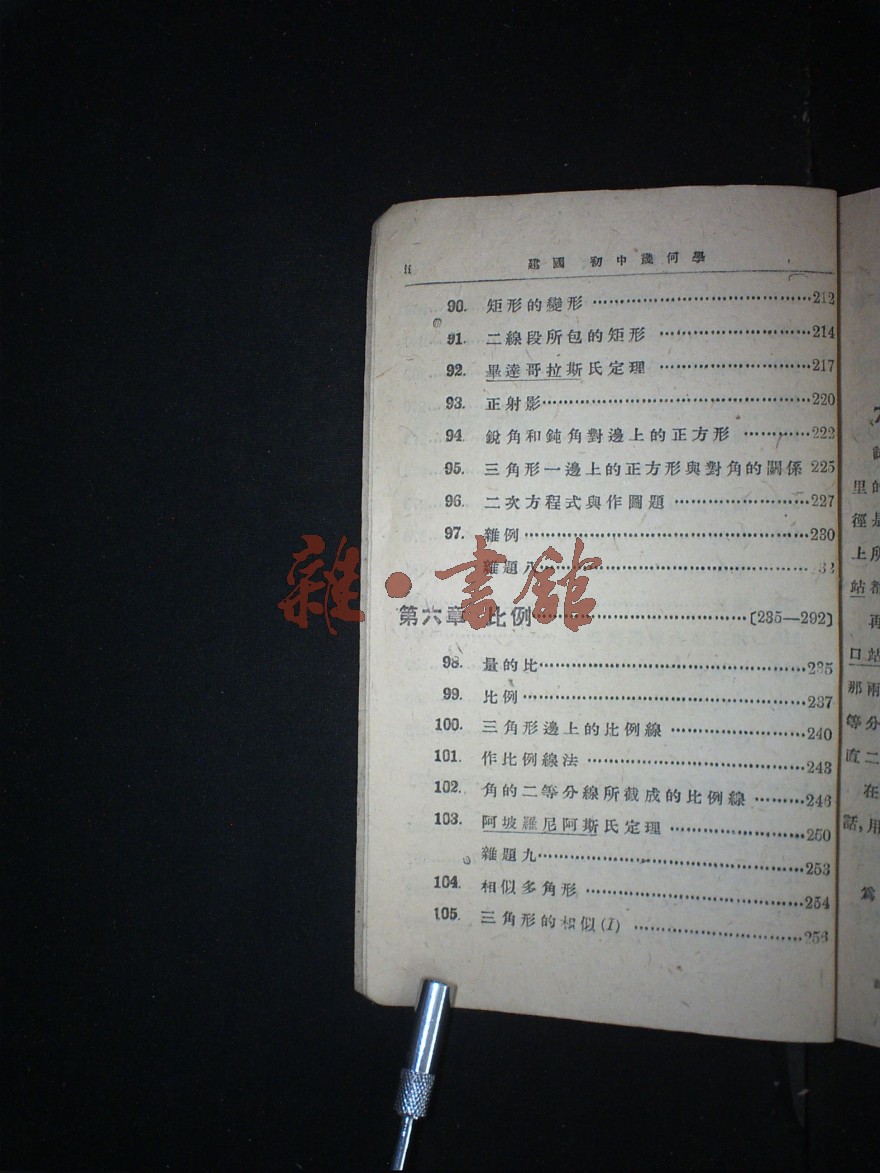 ii 建國 初中幾何學
90. 矩形的變形 212
91. 二線段所包的矩形 214
92. 畢達哥拉斯氏定理 217
93. 正射影 220
94. 銳角和鈍角對邊上的正方形 222
95. 三角形一邊上的正方形與對角的關係 225
96. 二次方程式與作圖題 227
97. 雜例 230
雜題八 32
第六章 比例 〔235—292〕
98. 量的比 235
99. 比例 237
100. 三角形邊上的比例線 240
101. 作比例線法 243
102. 角的二等分線所截成的比例線 246
103. 阿坡羅尼阿斯氏定理 250
雜題九 253
104. 相似多角形 254
105. 三角形的相似(I) 256
雜·書館
里的
徑是
上所
站都
再
口站
那兩
等分
直二
在
話,用
爲